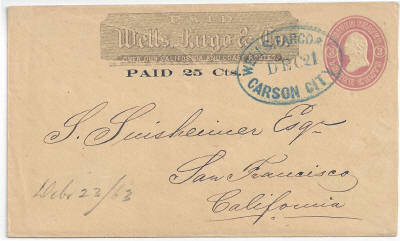 PAID
Wells, Fargo & Co
OVER OUR CALIFORNIA AND COAST ROUTES
PAID 25 Cts.
WELLS FARGO &
DEC 21
CARSON CITY
S. Sinsheimer Esqr
San Francisco
California
Decbr 22/63